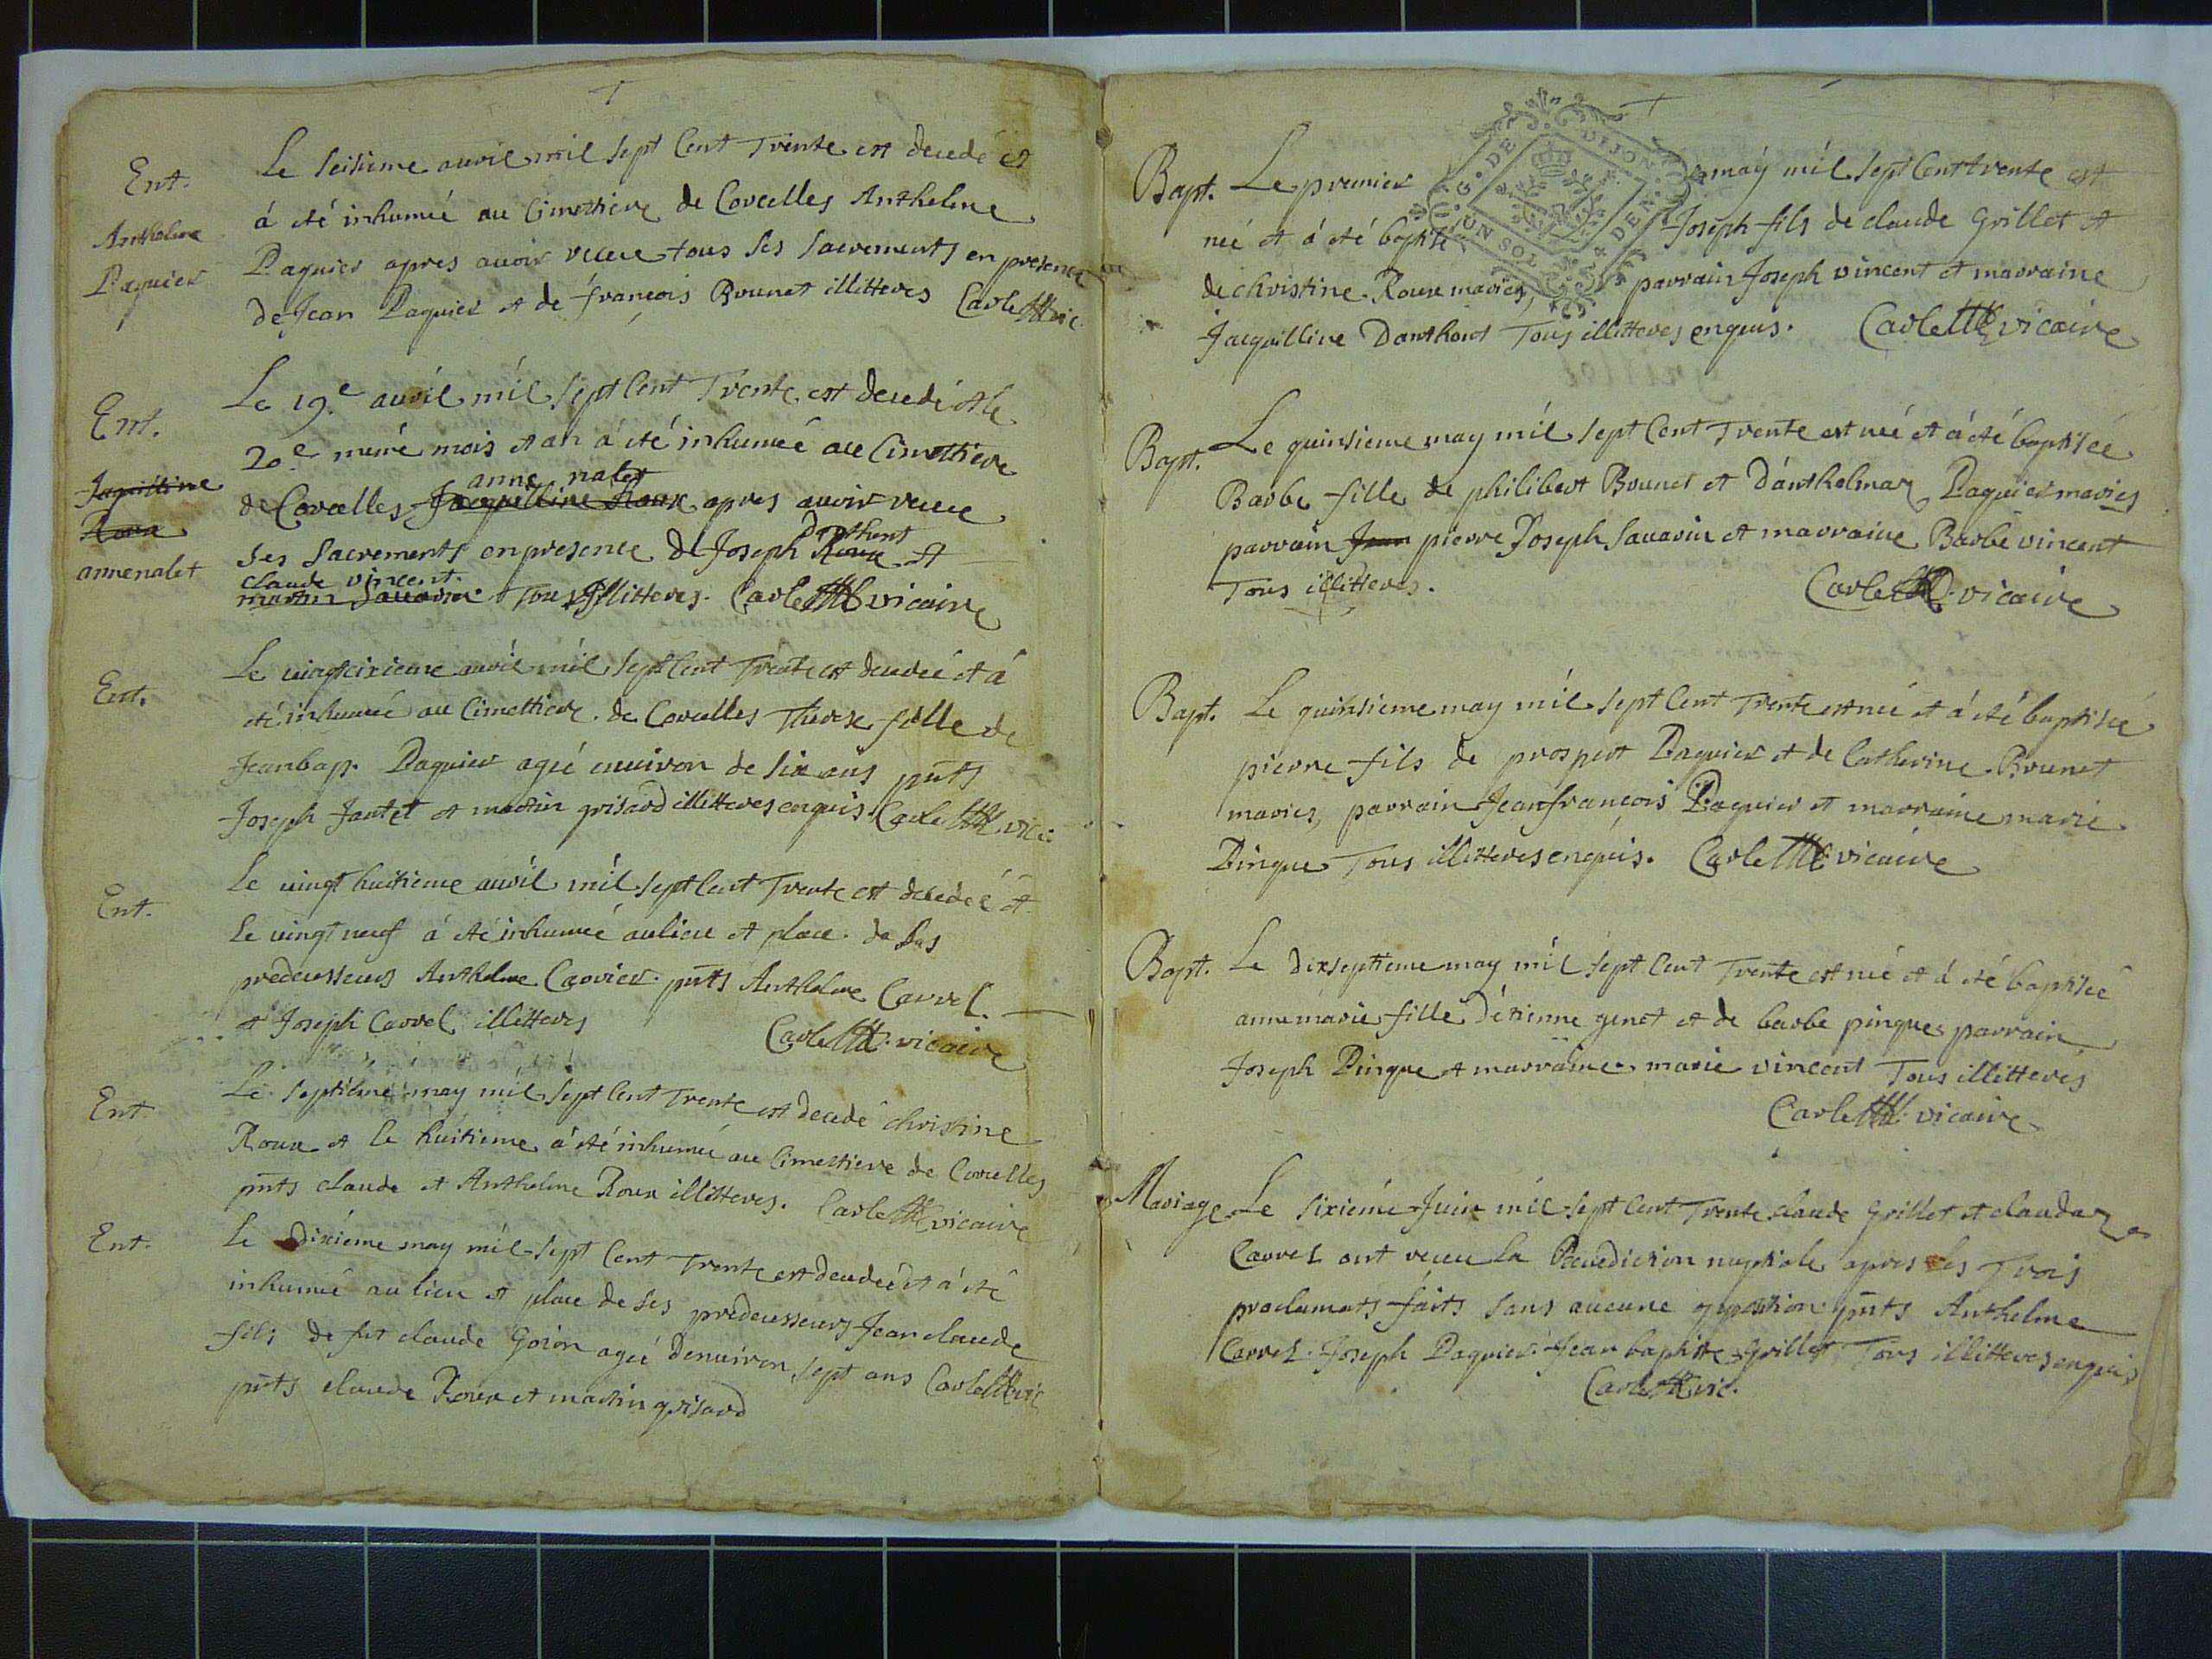 Ent.
Anthelme
Paquier
Le seisieme auvil mil sept Cent Trente est decedé et
á eté inhumée au Cimettiere de Corcelles Anthelme
Paquier apres auoir receue tous ses sacrements en presence
de Jean Paquier et de françois Brunet illitteres Carlet vic.
Ent.
Jaquilline
Roux
anne nalet
Le 19.e auvil mil sept Cent Trente est decedé et le
20.e mémé mois et an á été inhumée au Cimettiere
anne nalet
de Corcelles Jacquelline Roux apres auoir receue
danthent
ses sacrements en presence de Joseph Roux et
claude vincent.
martin Sauarin Tous Illitteres. Carlet vicaire
Ent.
Le uingt sixieme auvil mil sept Cent Trente est decedeé et á
eté inhumée au Cimettiere de Corcelles Therese fille de
Jeanbap. Paquier ageé enuiron de six ans pnts
Joseph Jantet et martin grisard illitteres enquis Carlet vic:
Ent.
Le uingt huitieme auvil mil sept Cent Trente est decedeé et
Le uingt neuf á eté inhumeé au lieu et place de ses
predecesseurs Anthelme Carrier pnts Anthelme Carrel
et Joseph Carrel illitteres Carlet vicaire
Ent
Le septiéme may mil sept Cent Trente est decedé christine
Roux et le huitieme á eté inhumeé au Cimettiere de Corcelles
pnts claude et Anthelme Roux illitteres. Carlet vicaire
Ent.
Le dixieme may mil sept Cent Trente est decedeé et á eté
inhumeé au lieu et place de ses predecesseurs Jean claude
fils de fut claude Goion ageé denuiron sept ans Carlet vic
pnts claude Roux et martin grisard
G. DE DIJON
UN SOL 4 DEN
Bapt. Le premier may mil sept Cent trente est
neé et á eté baptisé Joseph fils de claude Grillet et
de christine Roux maries, parrain Joseph vincent et marraine
Jacquilline Danthont Tous illitteres enquis. Carlet vicaire
Bapt. Le quinsieme may mil sept Cent Trente est neé et á eté baptiseé
Barbe fille de philibert Brunet et d'anthelmaz Paquier maries
parrain Jean pierre Joseph Sauarin et marraine Barbe vincent
Tous illitteres. Carlet vicaire
Bapt. Le quinsieme may mil sept Cent Trente est neé et á eté baptiseé
pierre fils de prospert Paquier et de Catherine Brunet
maries, parrain Jean françois Paquier et marraine marie
Pinque Tous illitteres enquis. Carlet vicaire
Bapt. Le dixseptieme may mil sept Cent Trente est neé et á eté baptiseé
anne marie fille d'etienne genet et de barbe pinques parrain
Joseph Pinque et marraine marie vincent Tous illitteres
Carlet vicaire
Mariage Le sixiemé Juin mil sept Cent Trente claude Grillet et claudaz
Carrel ont receu la Benediction nuptiale apres les Trois
proclamats faits sans aucune opposition pnts Anthelme
Carrel Joseph Paquier Jean baptiste Grillet Tous illitteres enquis
Carlet vic.